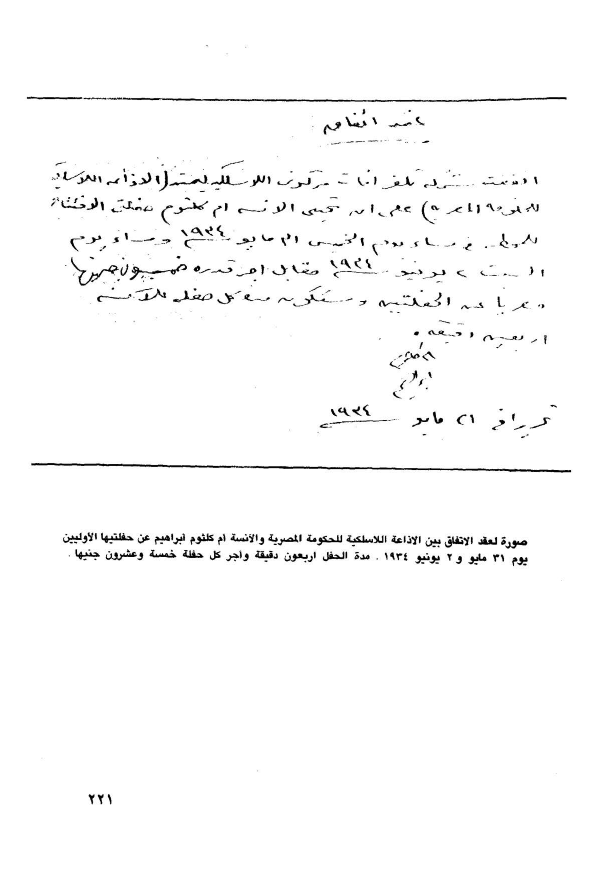 عقد اتفاق
اتفقت شركة تلغرافات مركوني اللاسلكية بصفتها (الاذاعة اللاسلكية
للحكومة المصرية) على ان تحيى الآنسة ام كلثوم حفلتى الافتتاح
للمحطة فى مساء يوم الخميس ٣١ مايو ١٩٣٤ ومساء يوم
السبت ٢ يونيو ١٩٣٤ مقابل اجر قدره خمسون جنيها
مصريا عن الحفلتين وستكون مدة كل حفلة للآنسة
اربعين دقيقة .
ام كلثوم
ابراهيم
تحريرا فى ٢١ مايو ١٩٣٤
صورة لعقد الاتفاق بين الاذاعة اللاسلكية للحكومة المصرية والآنسة أم كلثوم ابراهيم عن حفلتيها الأوليين
يوم ٣١ مايو و ٢ يونيو ١٩٣٤ . مدة الحفل اربعون دقيقة وأجر كل حفلة خمسة وعشرون جنيها .
٢٢١